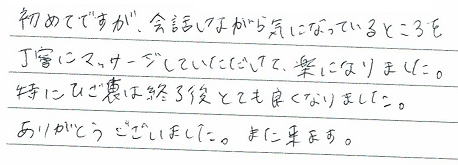 初めてですが、会話しながら気になっているところを
丁寧にマッサージしていただいて、楽になりました。
特にひざ裏は終了後とても良くなりました。
ありがとうございました。また来ます。